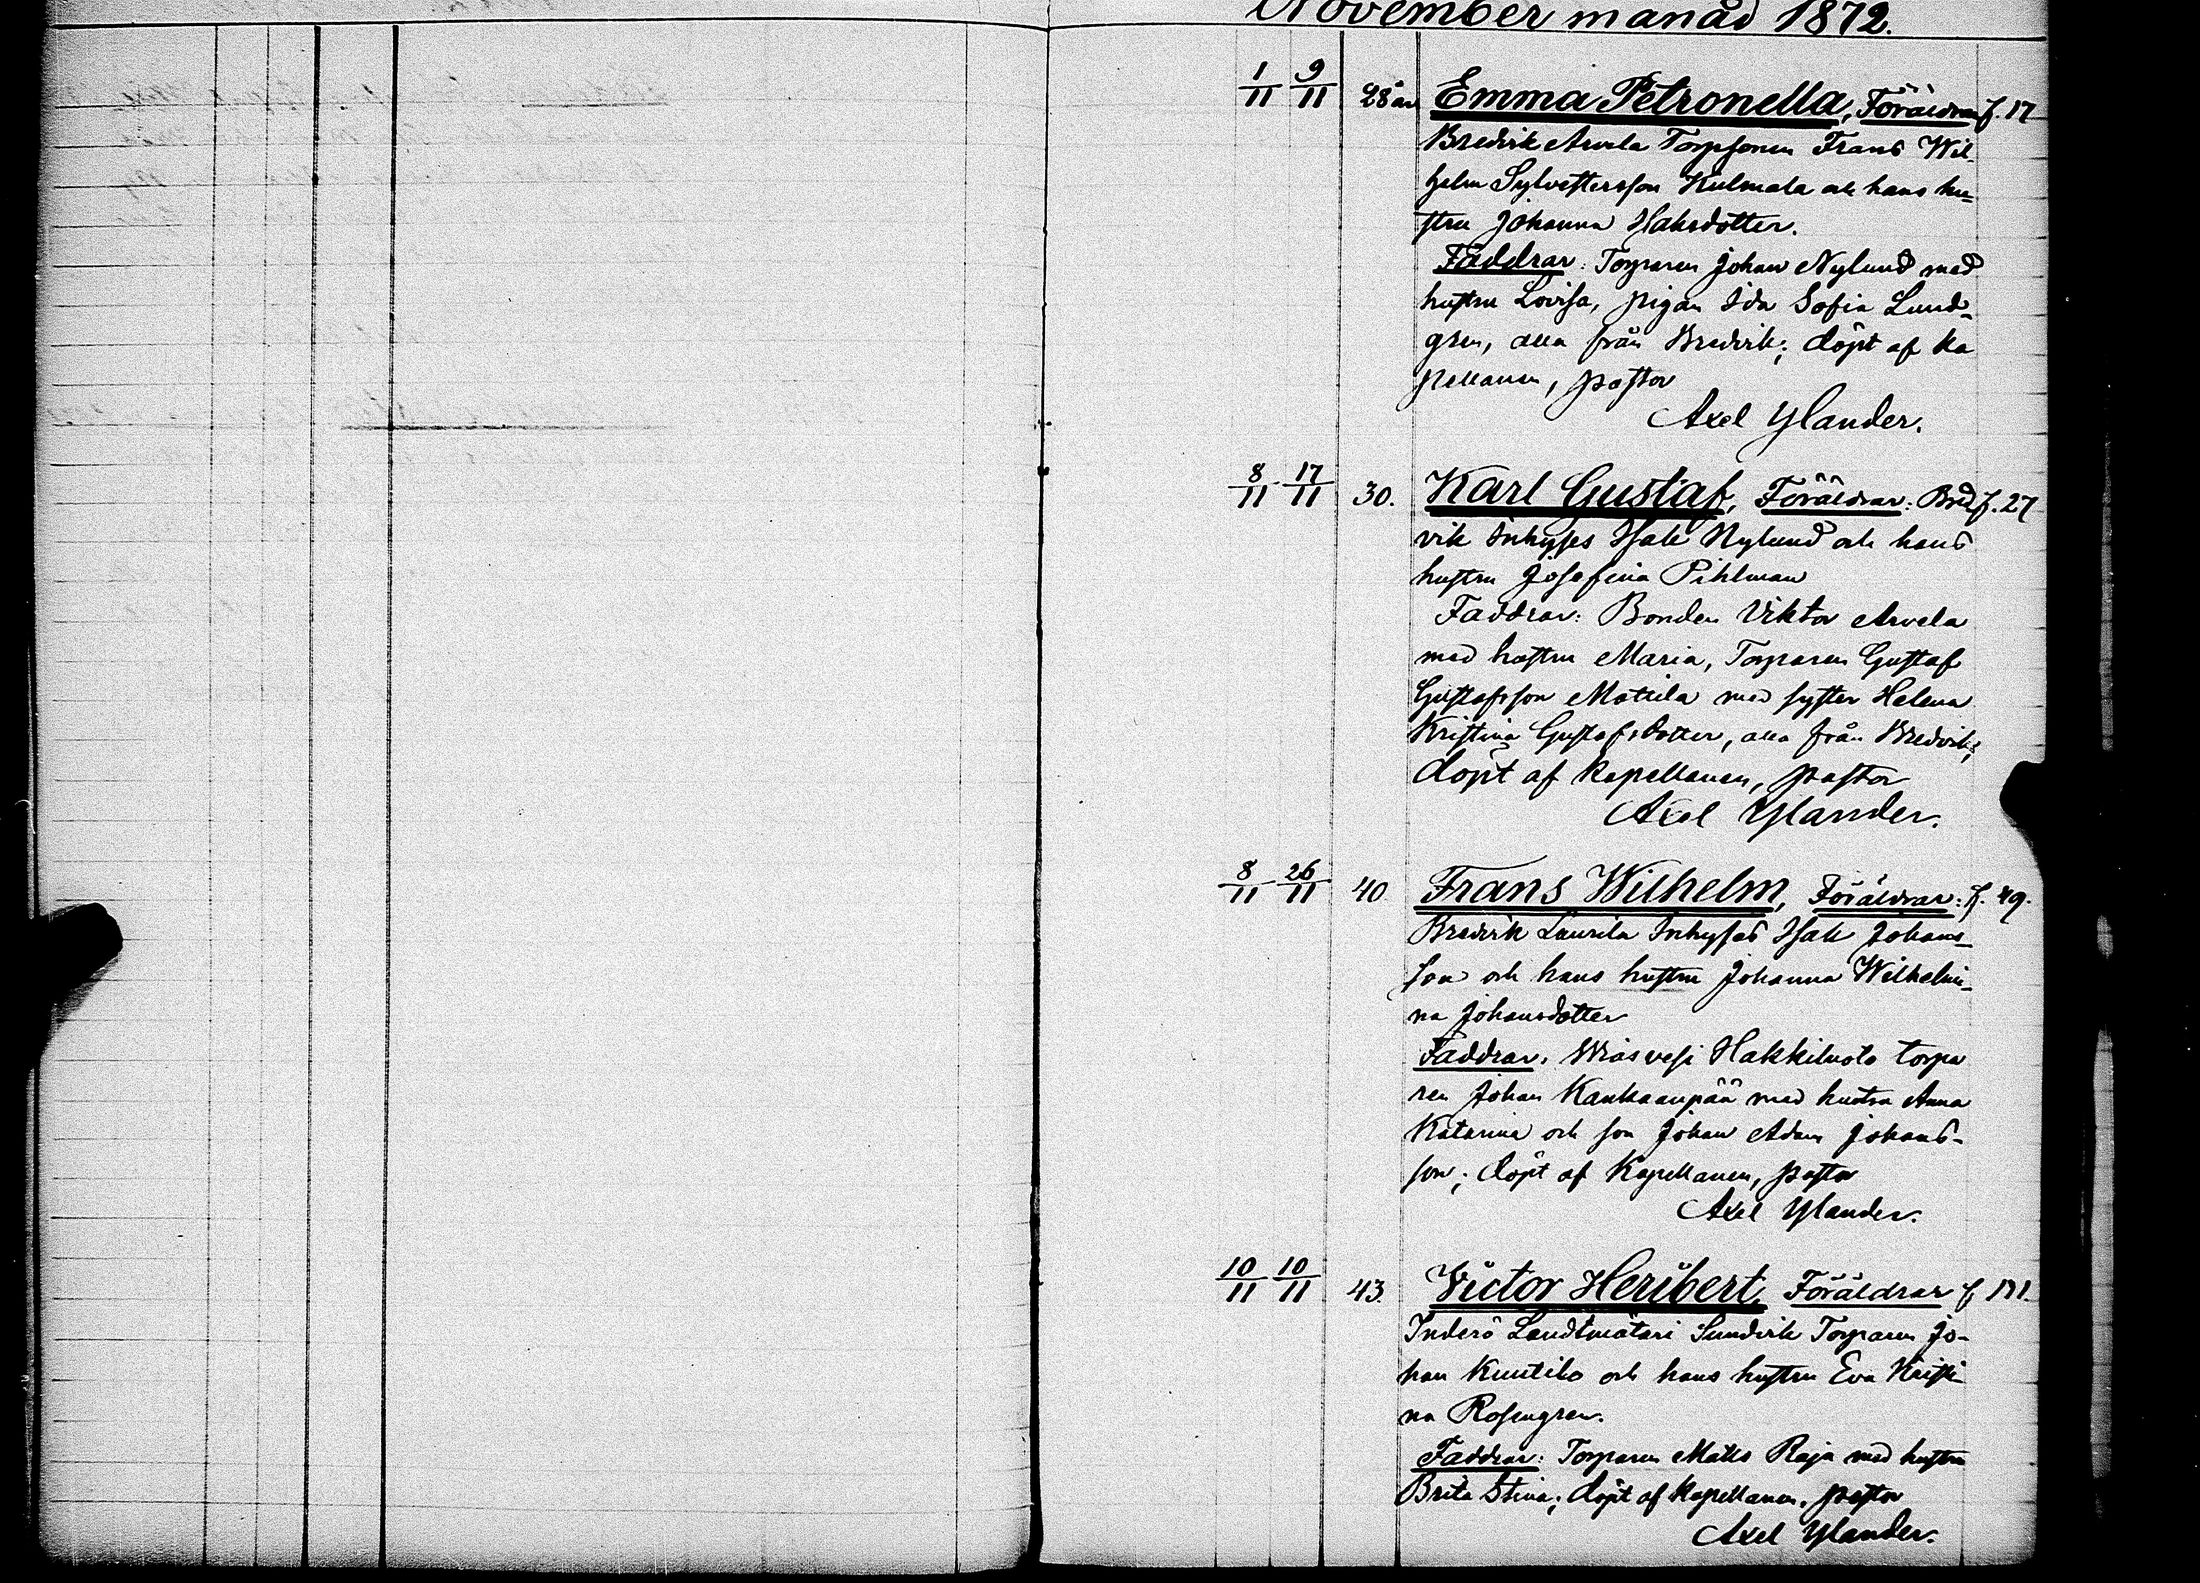 November månad 1872.
1/11 9/11 28 år Emma Petronella, Föräldrar f. 17
Bredvik Arvela Torpsonen Frans Wil-
helm Sylvestersson Kulmala och hans hu=
stru Johanna Isaksdotter.
Faddrar: Torparen Johan Nylund med
hustru Lovisa, pigan Ida Sofia Lund-
gren, alla från Bredvik; döpt af ka
pellanen, pastor
Axel Ylander.
8/11 17/11 30. Karl Gustaf, Föräldrar: Bred f. 27
vik Inhyses Isak Nylund och hans
hustru Josefina Pihlman
Faddrar: Bonden Viktor Arvela
med hustru Maria, Torparen Gustaf
Gustafsson Mattila med syster Helena
Kristina Gustafsdotter, alla från Bredvik;
döpt af kapellanen, pastor
Axel Ylander.
8/11 26/11 40. Frans Wilhelm, Föräldrar: f. 49.
Bredvik Laurila Inhyses Isak Johans-
son och hans hustru Johanna Wilhelmi-
na Johansdotter
Faddrar. Wräsvesi Hakkiluoto torpa
ren Johan Kankaanpää med hustru Anna
Katarina och son Johan Adam Johans-
son; döpt af Kapellanen, pastor
Axel Ylander.
10/11 10/11 43. Victor Heribert, Föräldrar f 191.
Inderö Landtmätari Sundvik Torparen Jo-
han Kuutilo och hans hustru Eva Kristi-
na Rosengren.
Faddrar: Torparen Matts Raja med hustru
Brita Stina; döpt af Kapellanen, pastor
Axel Ylander.